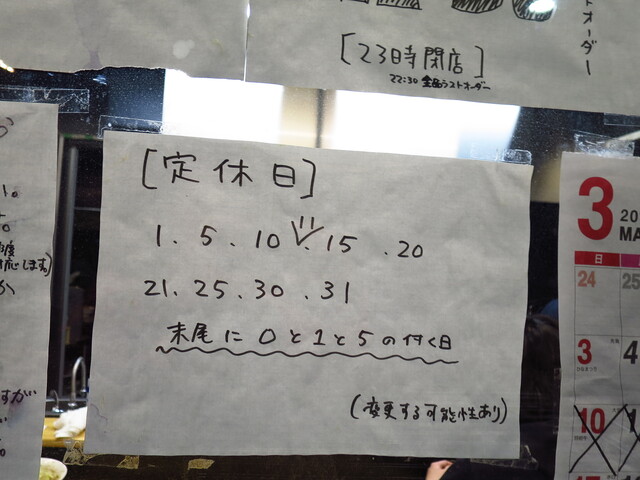 ストオーダー
[23時閉店]
22:30 全品ラストオーダー
[定休日]
1. 5. 10 11 15 . 20
21. 25. 30. 31
末尾に0と1と5の付く日
(変更する可能性あり)
応します)
か
すがい
3
20
MA
日
24
25
3
4
10
17